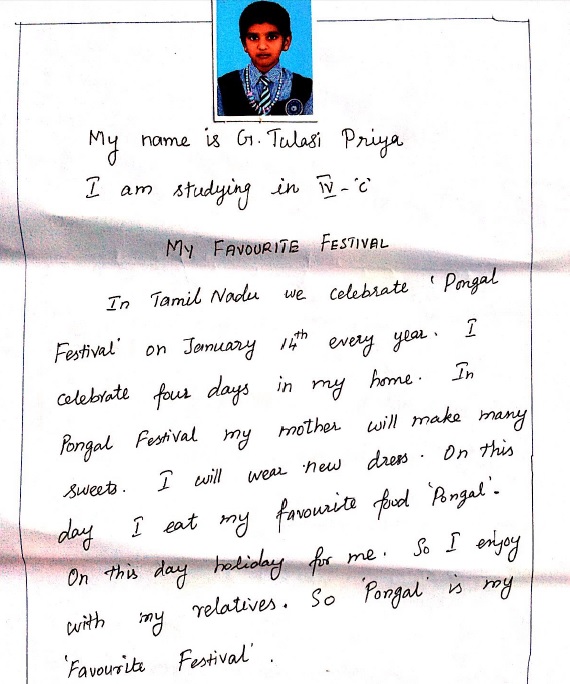 My name is G. Tulasi Priya
I am studying in IV - 'C'
MY FAVOURITE FESTIVAL
In Tamil Nadu we celebrate 'Pongal
Festival' on January 14th every year. I
celebrate four days in my home. In
Pongal Festival my mother will make many
sweets. I will wear new dress. On this
day I eat my favourite food 'Pongal'.
On this day holiday for me. So I enjoy
with my relatives. So 'Pongal' is my
'Favourite Festival'.